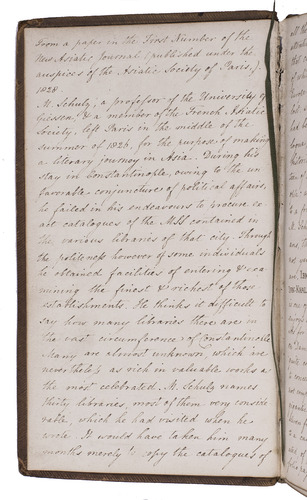 From a paper in the First Number of the
New Asiatic Journal (published under the
auspices of the Asiatic Society of Paris,).
1828
M. Schulz, a professor of the University of
Giessen, & a member of the French Asiatic
Society, left Paris in the middle of the
summer of 1826, for the purpose of making
a literary journey in Asia. During his
stay in Constantinople, owing to the un
favorable conjuncture of political affairs,
he failed in his endeavours to procure ex
act catalogues of the MSS contained in
the various libraries of that city. Through
the politeness however of some individuals
he obtained facilities of entering & exa
mining the finest & richest of those
establishments. He thinks it difficult to
say how many libraries there are in
the vast circumference of Constantinople
Many are almost unknown, which are
nevertheless as rich in valuable works as
the most celebrated. M. Schulz names
thirty libraries, most of them very conside
rable, which he had visited when he
wrote. It would have taken him many
months merely to copy the catalogues of